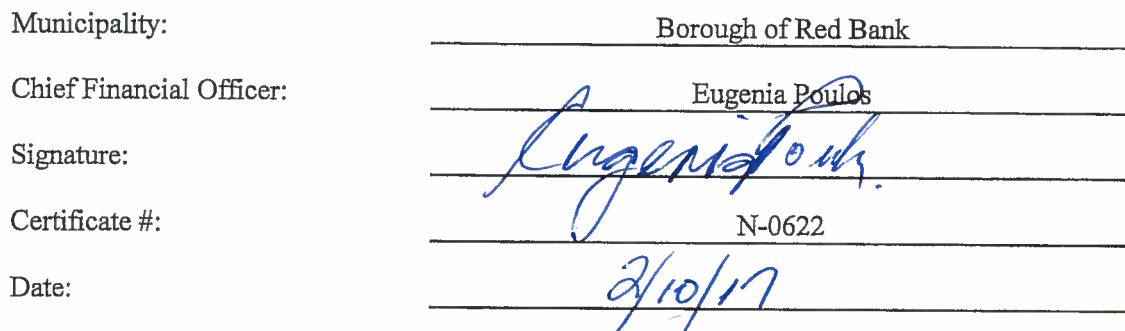 Municipality: Borough of Red Bank
Chief Financial Officer: Eugenia Poulos
Signature: Eugenia Poulos
Certificate #: N-0622
Date: 2/10/17